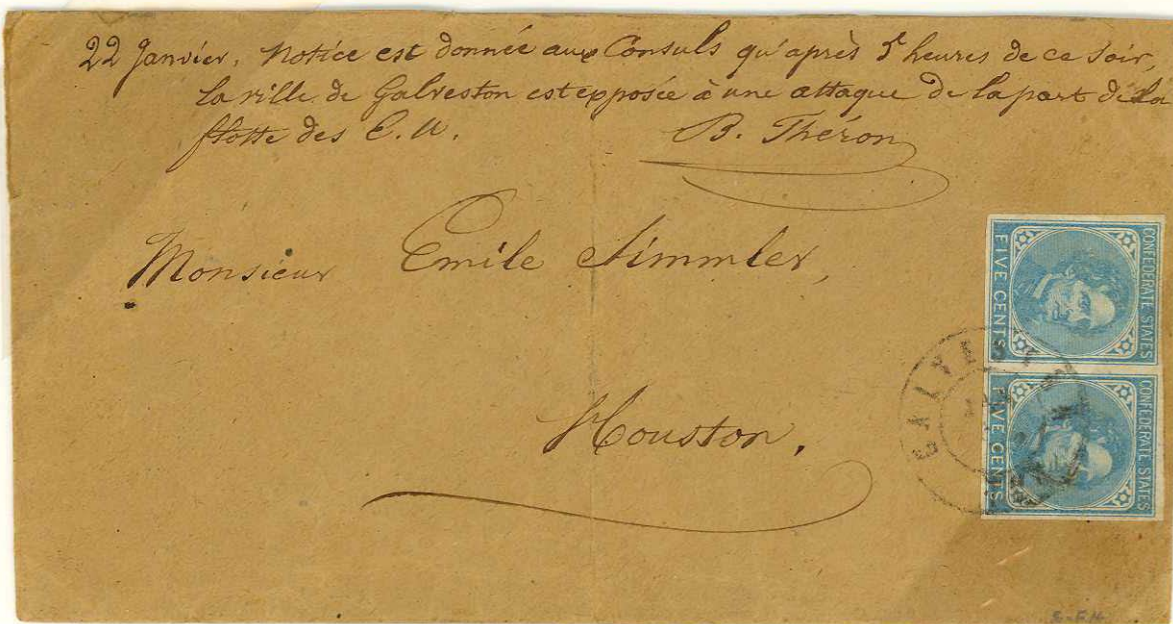 22 Janvier. Notice est donnée aux Consuls qu'après 5 heures de ce soir,
la ville de Galveston est exposée à une attaque de la part de la
flotte des E. U.
B. Théron
Monsieur Emile Simmler,
Houston.
CONFEDERATE STATES
FIVE CENTS
CONFEDERATE STATES
FIVE CENTS